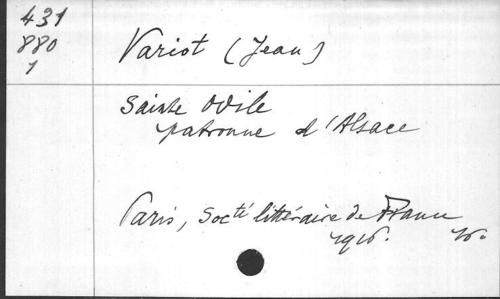 431
880
1
Variot (Jean)
Sainte Odile
patronne d'Alsace
Paris, Socté littéraire de France
1916. 16.